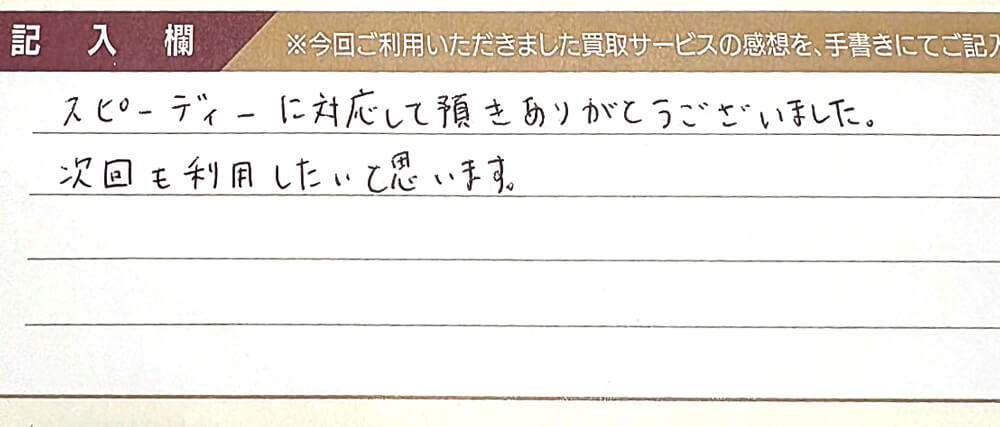 記入欄 ※今回ご利用いただきました買取サービスの感想を、手書きにてご記入
スピーディーに対応して預きありがとうございました。
次回も利用したいと思います。